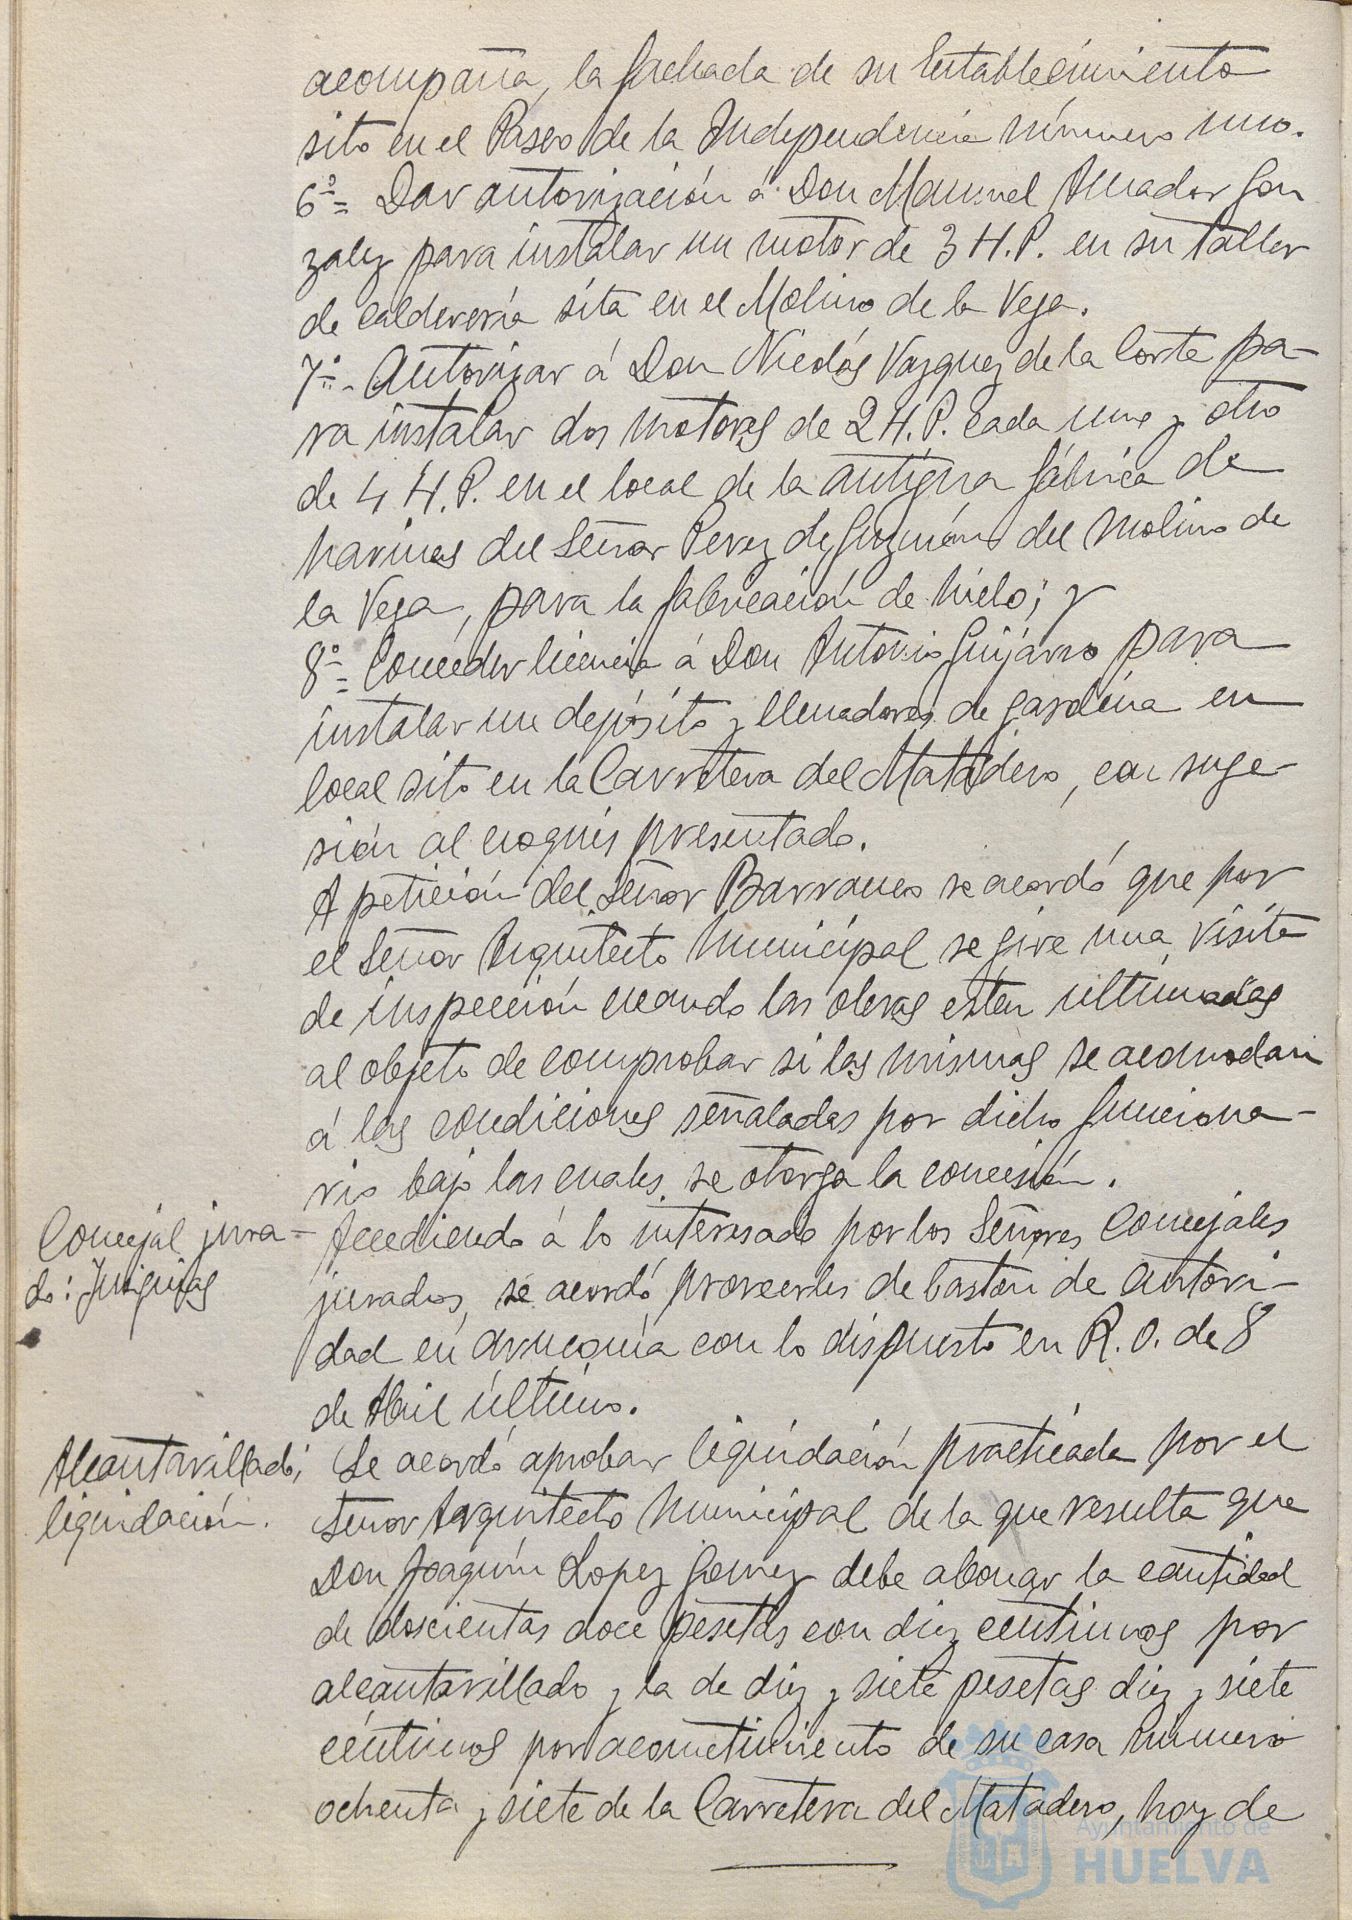 acompaña, la fachada de su Establecimiento
sito en el Paseo de la Independencia número uno.
6º= Dar autorización á Don Manuel Amador Gon
zalez para instalar un motor de 3 H.P. en su taller
de calderería sita en el Molino de la Vega.
7º- Autorizar á Don Nicolás Vazquez de la Corte pa-
ra instalar dos motores de 2 H.P. cada uno y otro
de 4 H.P. en el local de la antigua fábrica de
harinas del Señor Perez de Guzmán del Molino de
la Vega, para la fabricación de hielo; y
8º= Conceder licencia á Don Antonio Guijarro para
instalar un depósito y llenadores de gasolina en
local sito en la Carretera del Matadero, con suge-
sión al croquis presentado.
A petición del Señor Barranco se acordó que por
el Señor Arquitecto Municipal se gire una visita
de inspección cuando las obras estén ultimadas
al objeto de comprobar si las mismas se acomodan
á las condiciones señaladas por dicho funciona-
rio bajo las cuales se otorga la concesión.
Concejal jura-
do: Insignias
Accediendo á lo interesado por los Señores Concejales
jurados, se acordó proveerles de bastón de autori-
dad en armonía con lo dispuesto en R.O. de 8
de Abril último.
Alcantarillado;
liquidación.
Se acordó aprobar liquidación practicada por el
Señor Arquitecto Municipal de la que resulta que
Don Joaquín Lopez Gomez debe abonar la cantidad
de doscientas doce pesetas con diez céntimos por
alcantarillado y la de diez y siete pesetas diez y siete
céntimos por acometimiento de su casa número
ochenta y siete de la Carretera del Matadero, hoy de
Ayuntamiento de
HUELVA